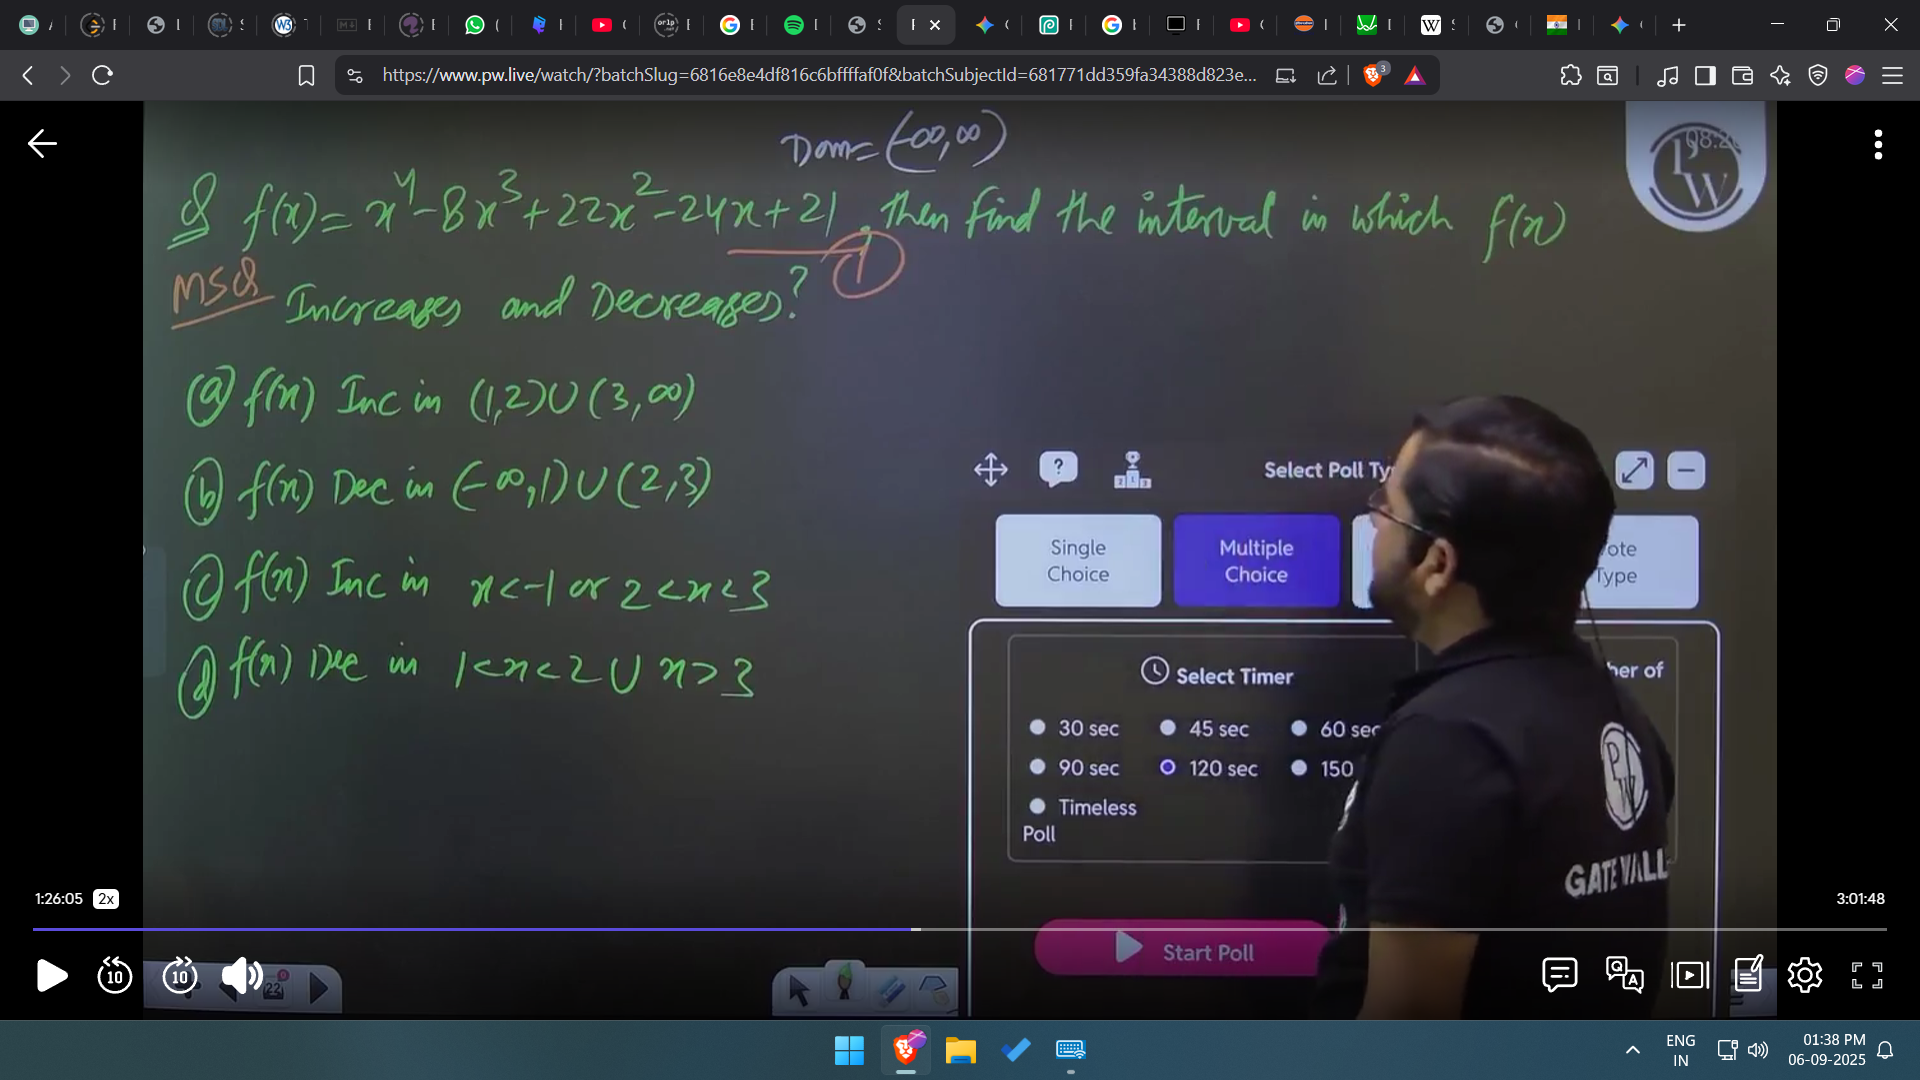 https://www.pw.live/watch/?batchSlug=6816e8e4df816c6bffffaf0f&batchSubjectId=681771dd359fa34388d823e...
3
Dom=(-∞,∞)
Q f(x)=x⁴-8x³+22x²-24x+21, then find the interval in which f(x)
1
MSQ Increases and Decreases?
(a) f(x) Inc in (1,2)∪(3,∞)
(b) f(x) Dec in (-∞,1)∪(2,3)
(c) f(x) Inc in x<-1 or 2<x<3
(d) f(x) Dec in 1<x<2 ∪ x>3
PW
Select Poll Ty
Single Choice
Multiple Choice
ote Type
Select Timer
ber of
30 sec 45 sec 60 sec
90 sec 120 sec 150
Timeless
Poll
Start Poll
PW
GATE WALL
1:26:05 2x
3:01:48
10 10
22
ENG
IN
01:38 PM
06-09-2025